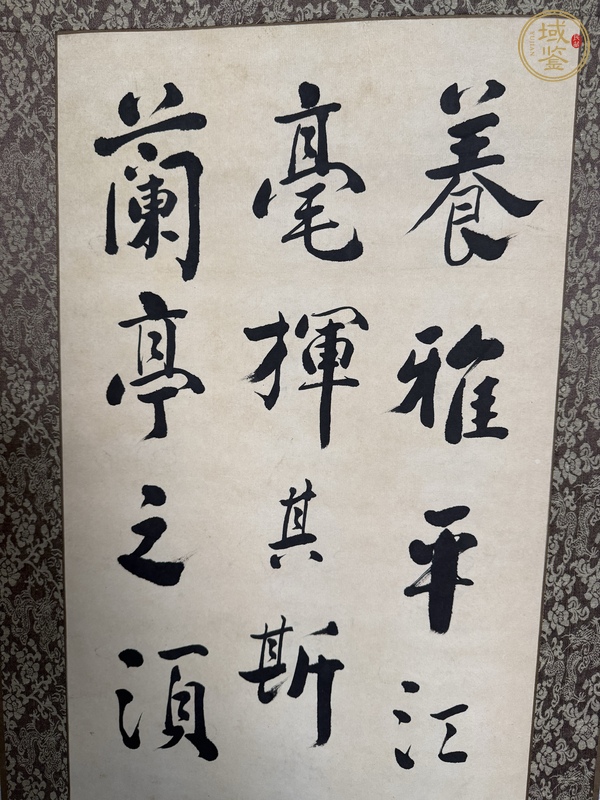 養雅平江
毫揮其斯
蘭亭之須
域鑒